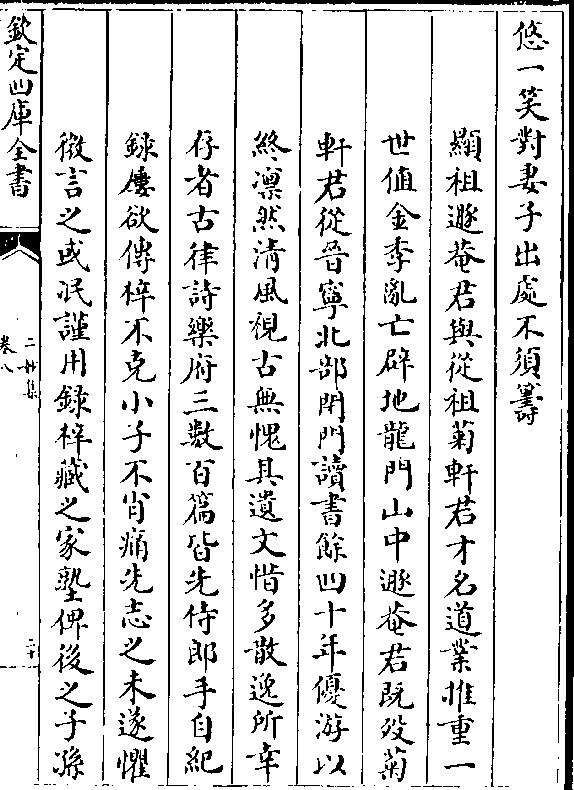 悠一笑對妻子出處不須籌
顯祖遯菴君與從祖菊軒君才名道業推重一
世值金季亂亡辟地龍門山中遯菴君既歿菊
軒君從晉寧北部閉門讀書餘四十年優游以
終凛然清風視古無愧其遺文惜多散逸所幸
存者古律詩樂府三數百篇皆先侍郎手自紀
録屢欲傳梓不克小子不肖痛先志之未遂懼
微言之或泯謹用録梓藏之家塾俾後之子孫
欽定四庫全書
二妙集
卷八
二十